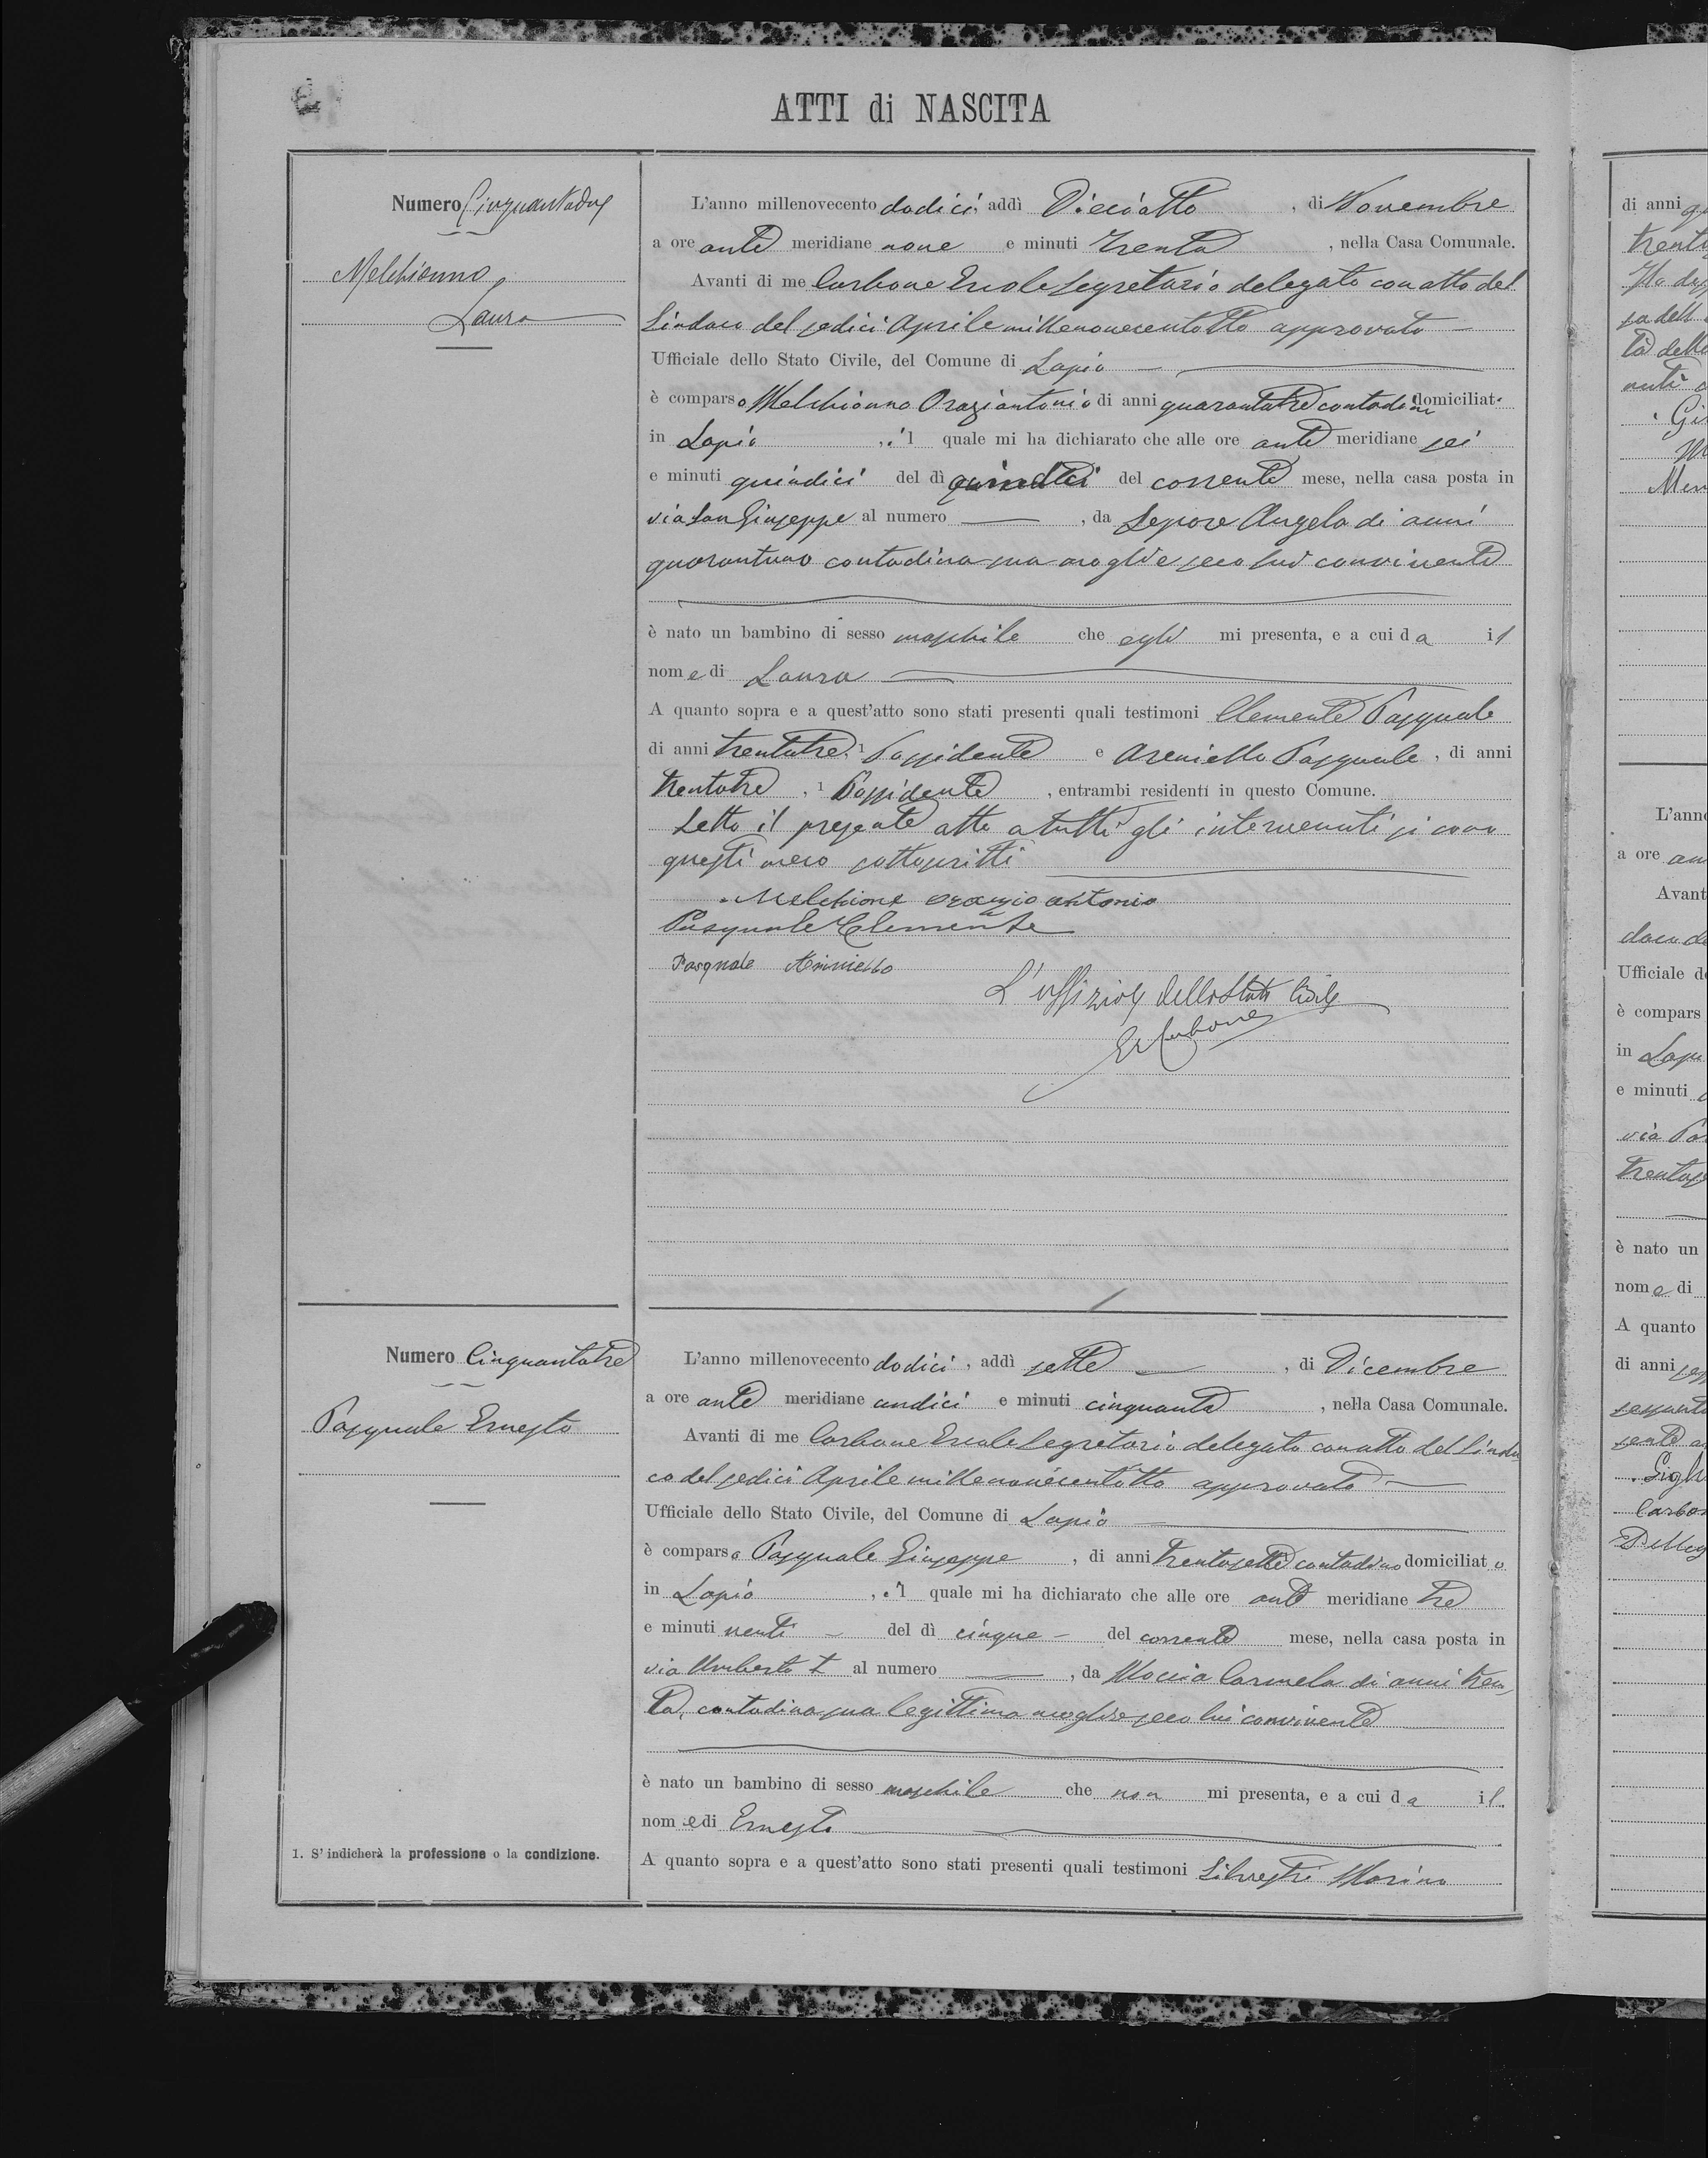 ATTI di NASCITA
Numero Cinquantadue
Melchionno
Laura
L'anno millenovecento dodici, addì Dieciotto, di Novembre
a ore ante meridiane nove e minuti trenta, nella Casa Comunale.
Avanti di me Carbone Ercole Segretario delegato con atto del
Sindaco del sedici Aprile millenovecentotto approvato
Ufficiale dello Stato Civile, del Comune di Lapio
è comparso Melchionno Oraziantonio di anni quarantatre contadino domiciliato
in Lapio, il quale mi ha dichiarato che alle ore ante meridiane sei
e minuti quindici del dì quindici del corrente mese, nella casa posta in
via San Giuseppe al numero — , da Lepore Angela di anni
quarantuno contadina sua moglie seco lui convivente
è nato un bambino di sesso maschile che egli mi presenta, e a cui da il
nome di Laura
A quanto sopra e a quest'atto sono stati presenti quali testimoni Clemente Pasquale
di anni trentatre, 1 Possidente e Areniello Pasquale, di anni
trentatre, 1 Possidente, entrambi residenti in questo Comune.
Letto il presente atto a tutti gli intervenuti si sono
questi meco sottoscritti
Melchione orazio antonio
Pasquale Clemente
Pasquale Ariniello
L'uffiziale dello Stato Civile
E Carbone
Numero Cinquantatre
Pasquale Ernesto
L'anno millenovecento dodici, addì sette — , di Dicembre
a ore ante meridiane undici e minuti cinquanta, nella Casa Comunale.
Avanti di me Carbone Ercole Segretario delegato con atto del Sinda
co del sedici Aprile millenovecentotto approvato —
Ufficiale dello Stato Civile, del Comune di Lapio
è comparso Pasquale Giuseppe, di anni trentasette contadino domiciliato
in Lapio, il quale mi ha dichiarato che alle ore ante meridiane tre
e minuti venti — del dì cinque — del corrente mese, nella casa posta in
via Umberto I al numero — , da Moccia Carmela di anni tren
ta, contadina sua legittima moglie seco lui convivente
è nato un bambino di sesso maschile che non mi presenta, e a cui da il
nome di Ernesto
A quanto sopra e a quest'atto sono stati presenti quali testimoni Silvestri Marino
1. S'indicherà la professione o la condizione.
di anni
L'anno
a ore
Avant
Ufficiale d
è compars
in Lapi
e minuti
via
è nato un
nome di
A quanto
di anni